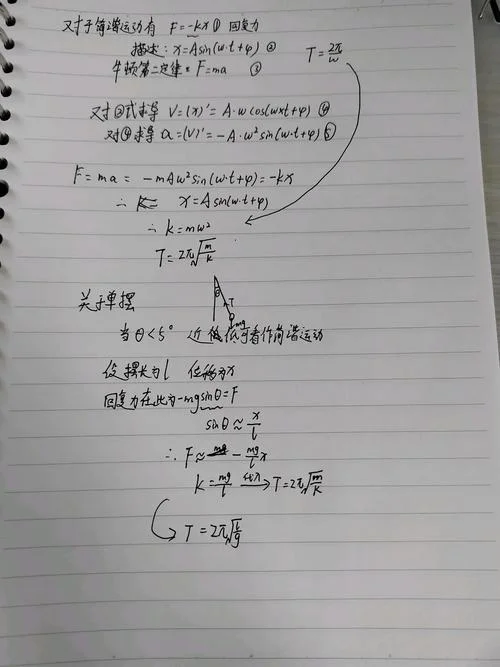 对于简谐运动有 F=-kx① 回复力
描述：x=Asin(w·t+φ) ②
T=2π/w
牛顿第二定律：F=ma ③
对②式求导 V=(x)'=A·w cos(w×t+φ) ④
对④求导 a=(V)'=-A·w²sin(w·t+φ) ⑤
F=ma= -mAw²sin(w·t+φ)=-kx
x=Asin(w·t+φ)
∴ k=mw²
T=2π√(m/k)
关于单摆
θ
T
mg
当θ<5° 近似可看作简谐运动
设摆长为l 位移为x
回复力在此为-mgsinθ=F
sinθ≈x/l
∴ F≈ -mg/l x
k=mg/l 代入→ T=2π√(m/k)
T=2π√(l/g)